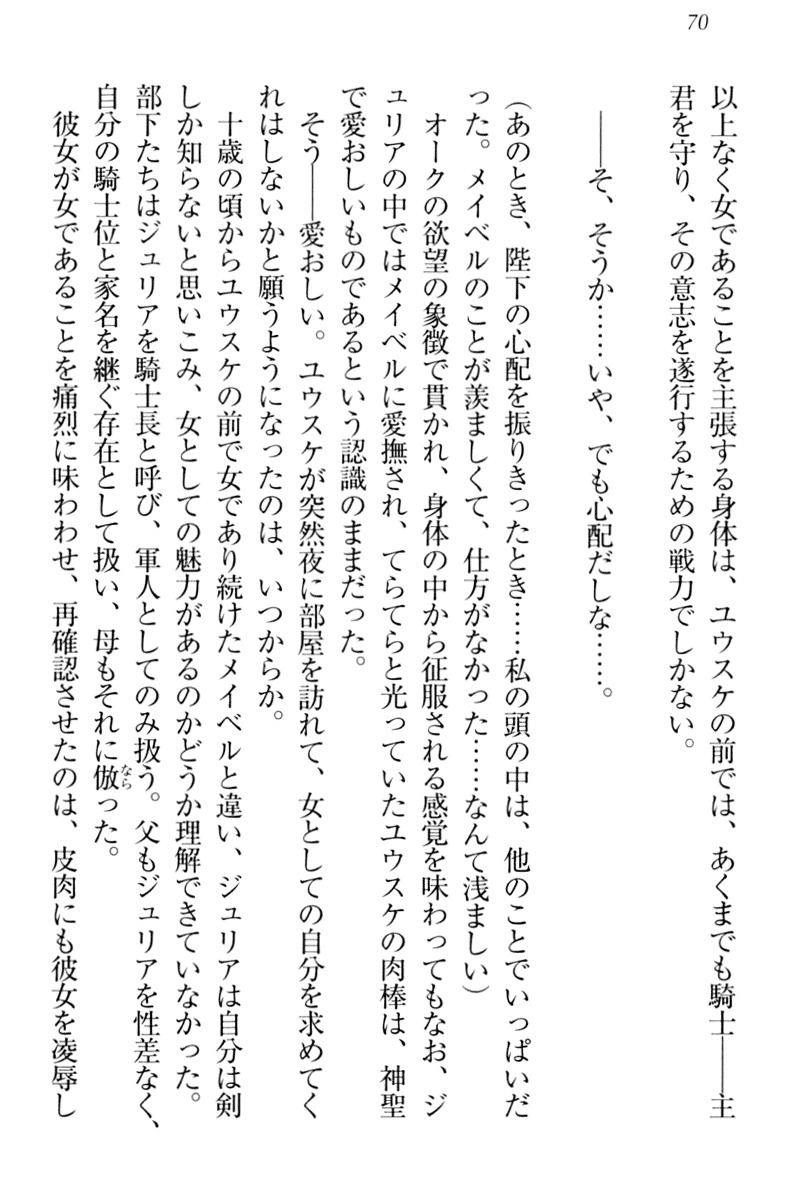 70
以上なく女であることを主張する身体は、ユウスケの前では、あくまでも騎士――主
君を守り、その意志を遂行するための戦力でしかない。
――そ、そうか……いや、でも心配だしな……。
(あのとき、陛下の心配を振りきったとき……私の頭の中は、他のことでいっぱいだ
った。メイベルのことが羨ましくて、仕方がなかった……なんて浅ましい)
オークの欲望の象徴で貫かれ、身体の中から征服される感覚を味わってもなお、ジ
ュリアの中ではメイベルに愛撫され、てらてらと光っていたユウスケの肉棒は、神聖
で愛おしいものであるという認識のままだった。
そう――愛おしい。ユウスケが突然夜に部屋を訪れて、女としての自分を求めてく
れはしないかと願うようになったのは、いつからか。
十歳の頃からユウスケの前で女であり続けたメイベルと違い、ジュリアは自分は剣
しか知らないと思いこみ、女としての魅力があるのかどうか理解できていなかった。
部下たちはジュリアを騎士長と呼び、軍人としてのみ扱う。父もジュリアを性差なく、
自分の騎士位と家名を継ぐ存在として扱い、母もそれに倣なら った。
彼女が女であることを痛烈に味わわせ、再確認させたのは、皮肉にも彼女を凌辱し